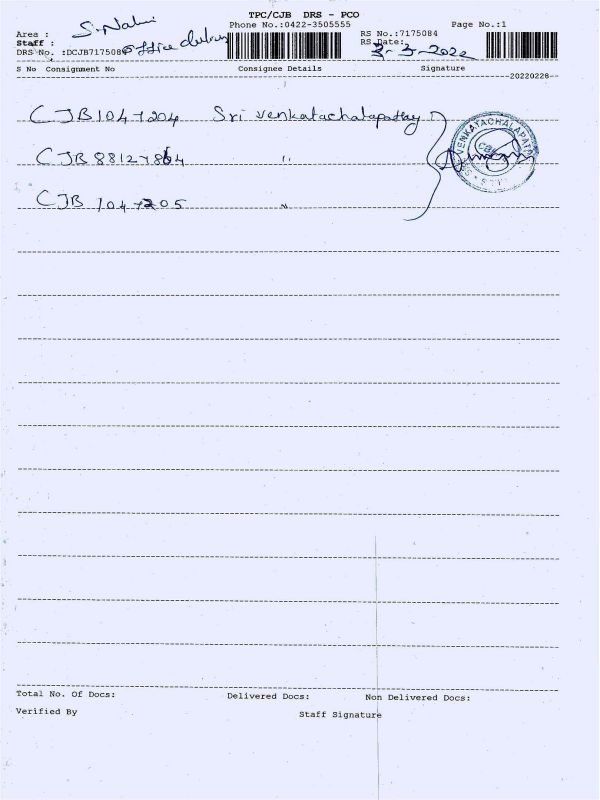 TPC/CJB DRS - PCO
Phone No.:0422-3505555
Page No.:1
Area : S. Nalini
Staff : office delivery
RS No.:7175084
RS Date: 3-3-2022
DRS No. :DCJB7175084
S No Consignment No Consignee Details Signature
20220228
CJB1047204 Sri venkatachalapathy
CJB 88127864 "
CJB 1047205 "
VENKATACHALAPATA
Total No. Of Docs: Delivered Docs: Non Delivered Docs:
Verified By Staff Signature